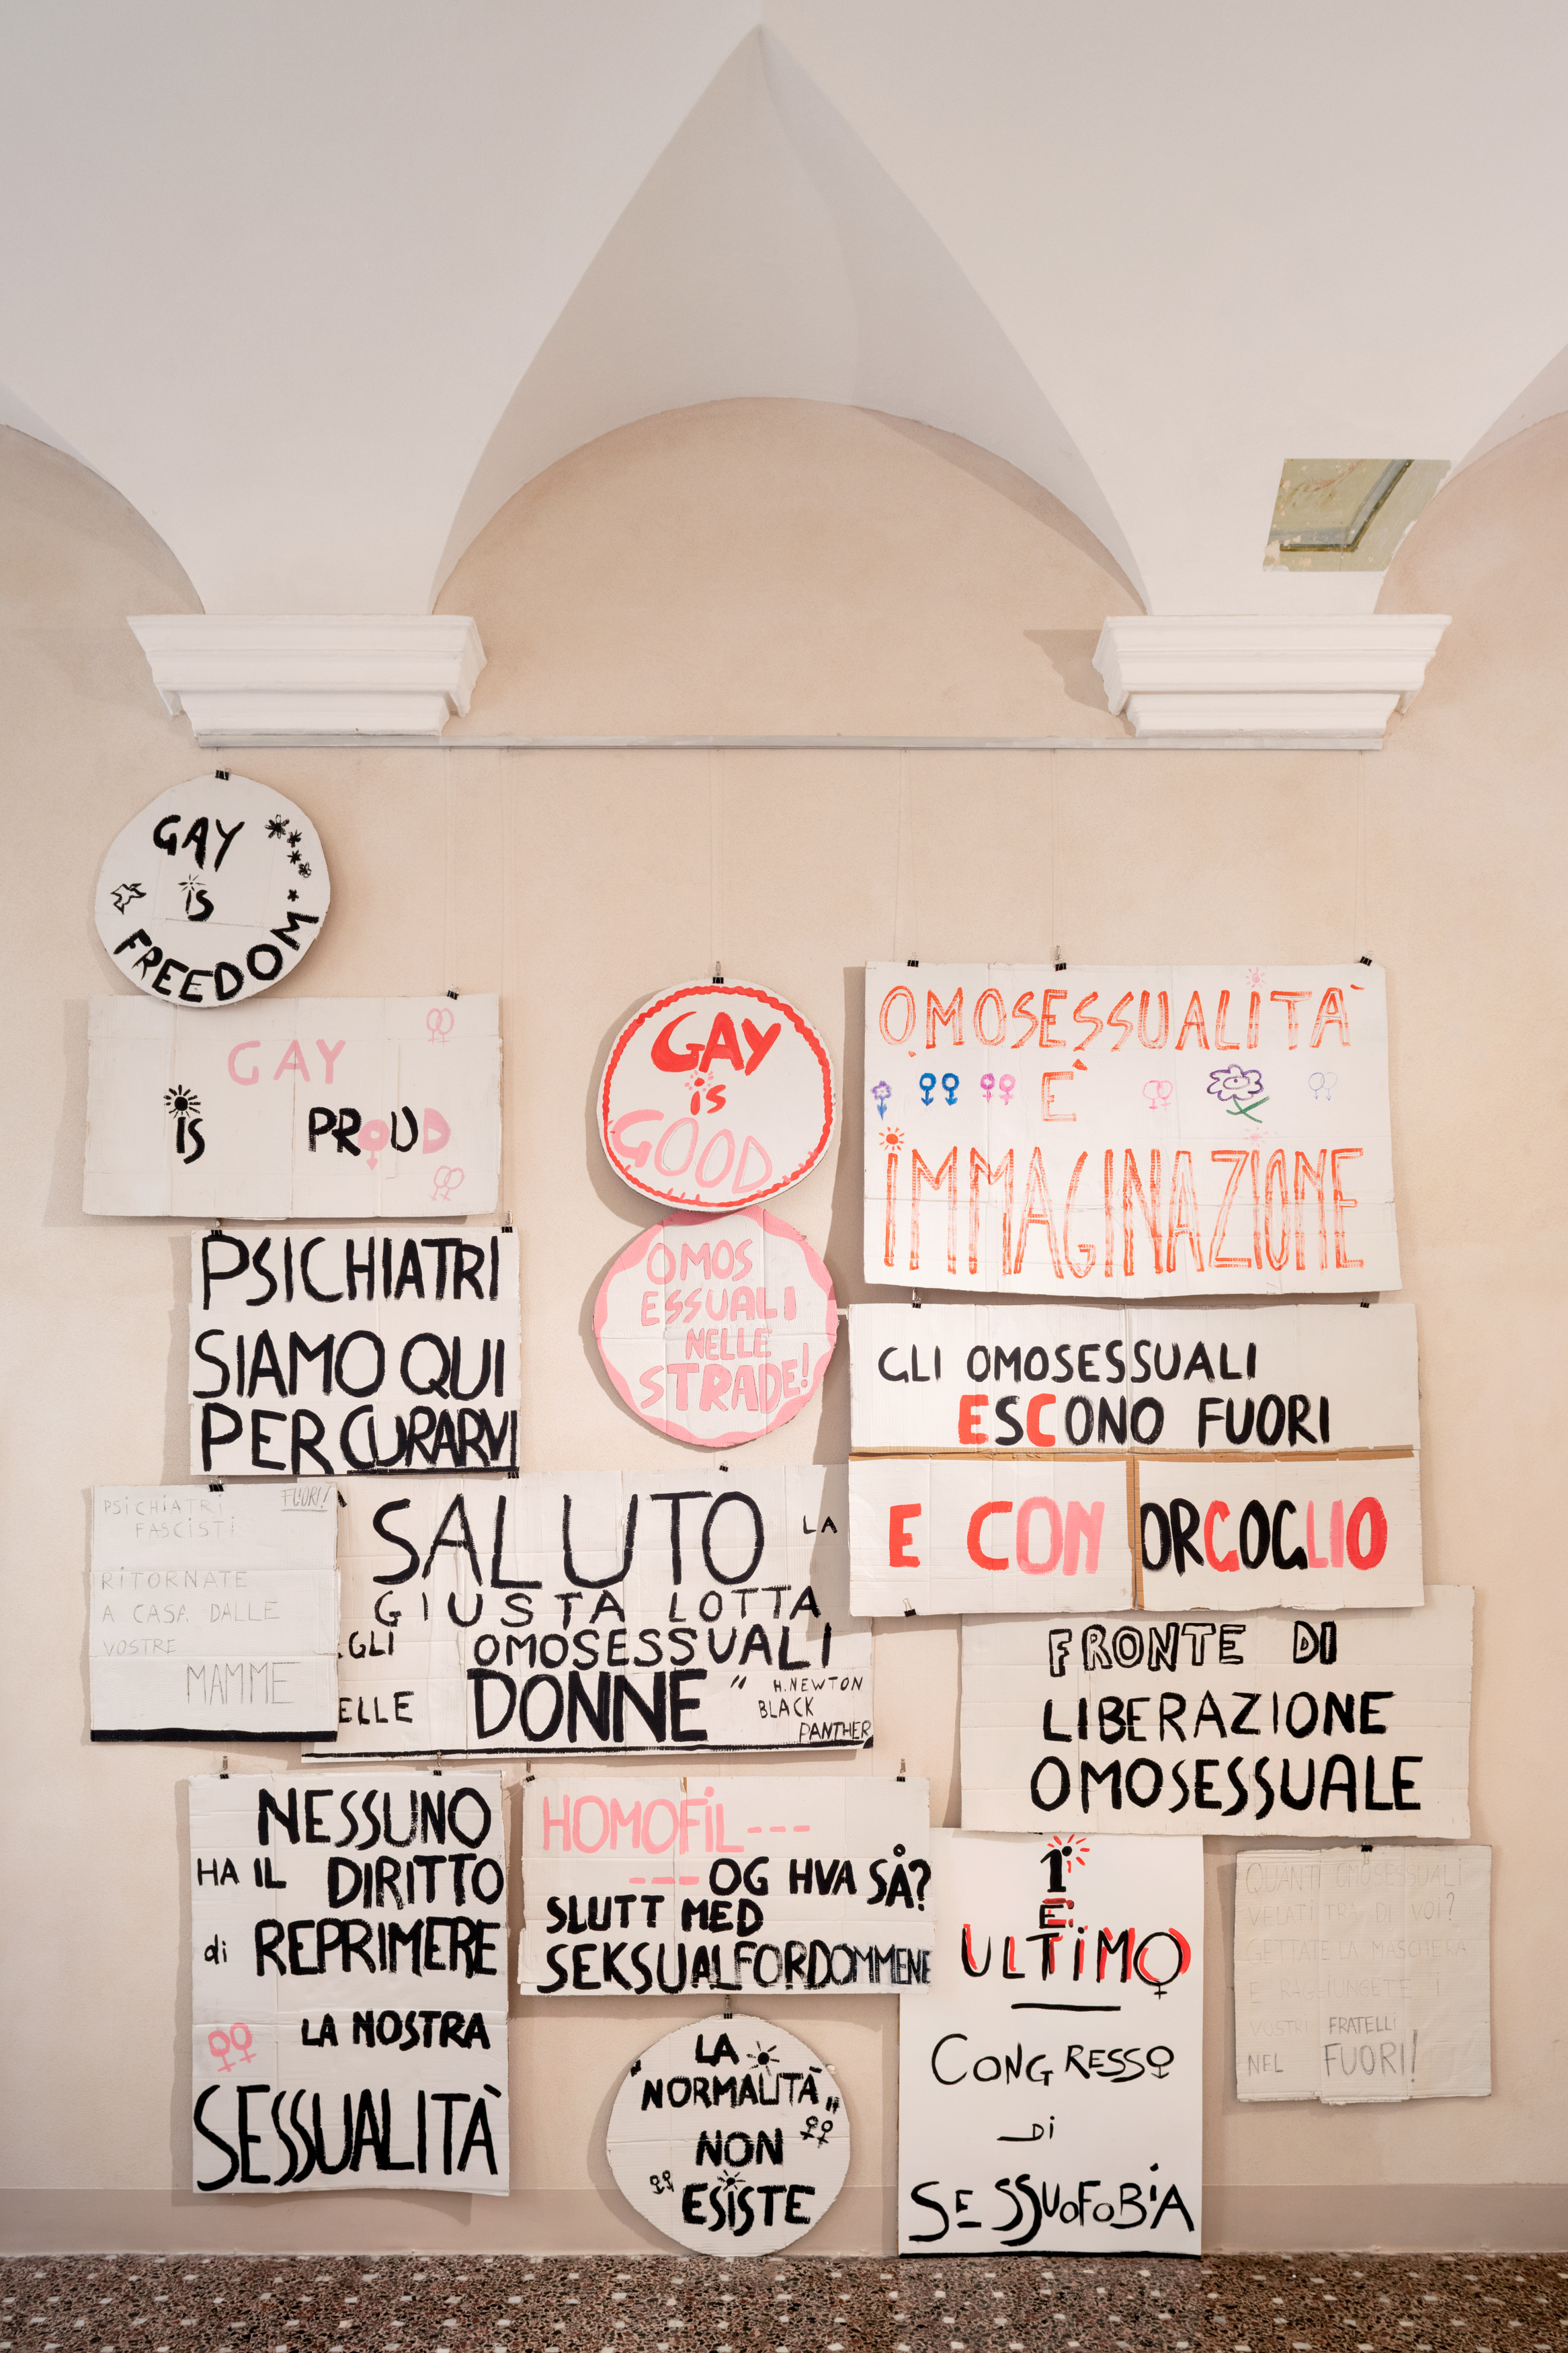 GAY
is
FREEDOM
GAY
iS
PROUD
GAY
is
GOOD
OMOSESSUALiTA'
E'
iMMAGiNAZiONE
PSICHIATRI
SIAMO QUI
PER CURARVI
OMOS
ESSUALI
NELLE
STRADE!
GLI OMOSESSUALI
ESCONO FUORI
E CON ORGOGLIO
PSiCHiATRi FUORi!
FASCiSTi
RiTORNATE
A CASA DALLE
VOSTRE
MAMME
SALUTO LA
GIUSTA LOTTA
GLI OMOSESSUALI
ELLE DONNE " H. NEWTON
BLACK
PANTHER
FRONTE DI
LIBERAZIONE
OMOSESSUALE
NESSUNO
HA IL DIRITTO
di REPRIMERE
LA NOSTRA
SESSUALITÀ
HOMOFiL---
---OG HVA SÅ?
SLUTT MED
SEKSUALFORDOMMENE
1°
E
ULTiMO
CONGRESSO
Di
SESSUOFOBiA
QUANTI OMOSESSUALI
VELATI TRA DI VOI?
GETTATE LA MASCHERA
E RAGGIUNGETE I
VOSTRI FRATELLI
NEL FUORI!
LA
"NORMALITÀ"
NON
ESiSTE